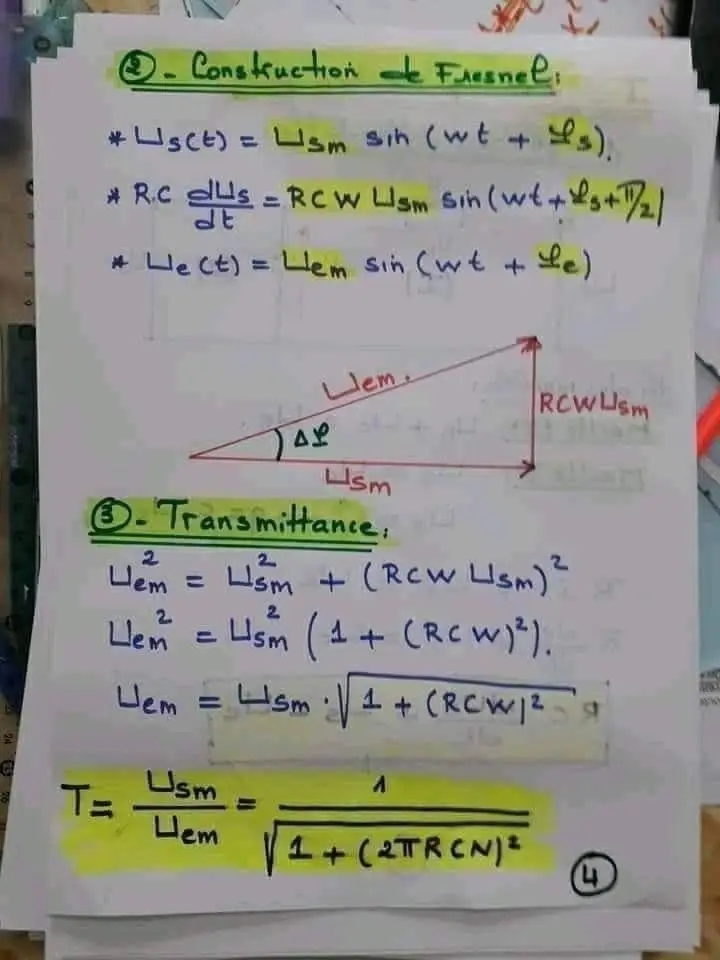 ② - Construction de Fresnel:
* Us(t) = Usm sin (wt + φs).
* R.C dUs/dt = RCW Usm sin(wt + φs + π/2)
* Ue(t) = Uem sin (wt + φe)
Uem.
RCW Usm
Δφ
Usm
③ - Transmittance.
Uem² = Usm² + (RCW Usm)²
Uem² = Usm² (1 + (RCW)²).
Uem = Usm . √1 + (RCW)²
T = Usm/Uem = 1/√1 + (2πRCN)²
④